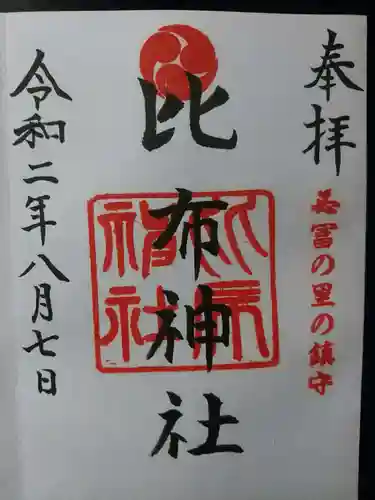 奉拝
富の里の鎮守
比布神社
令和二年八月七日